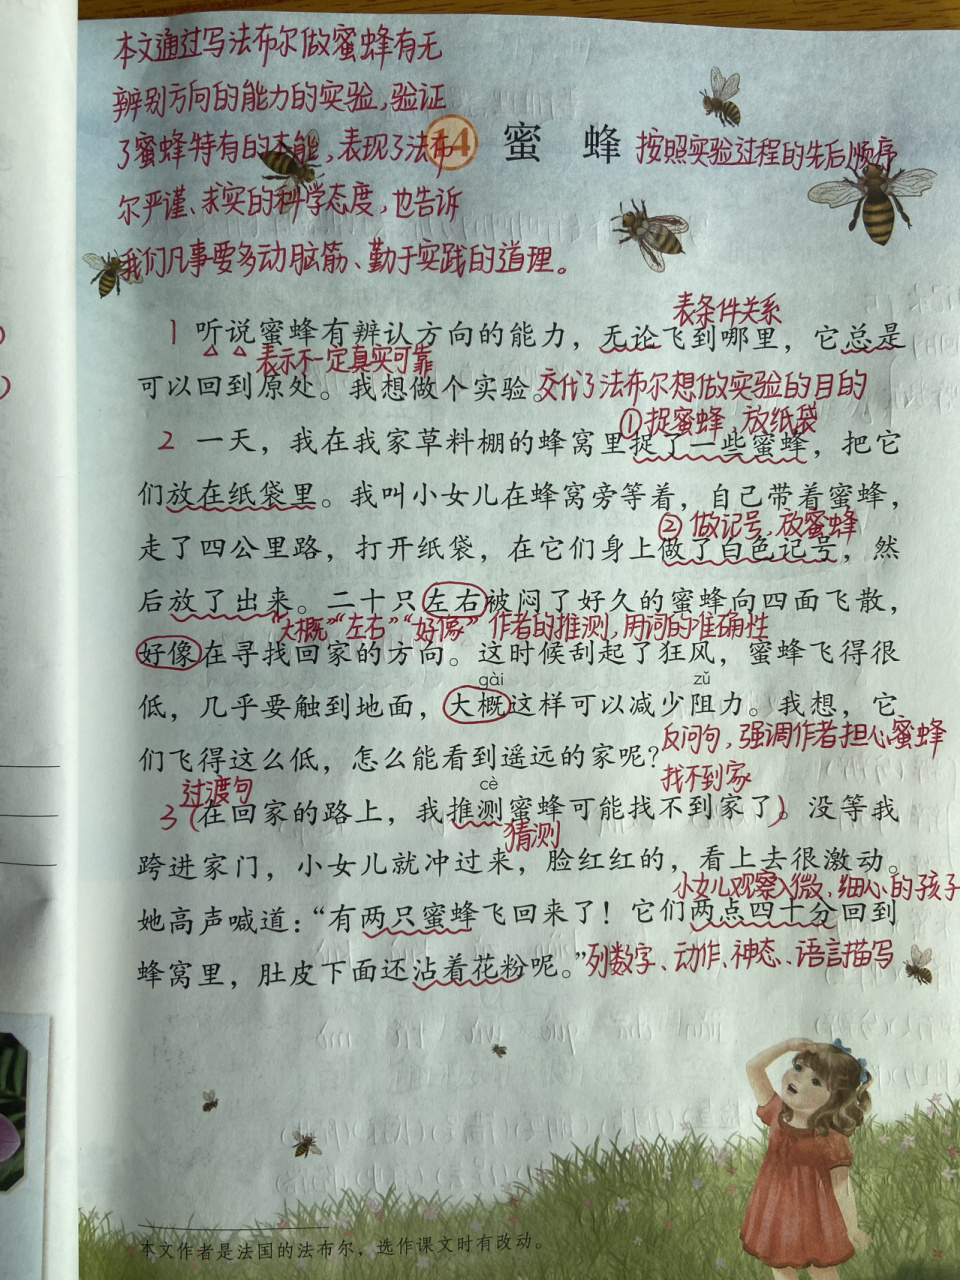 本文通过写法布尔做蜜蜂有无
辨别方向的能力的实验,验证
了蜜蜂特有的本能,表现了法布
尔严谨、求实的科学态度,也告诉
我们凡事要多动脑筋、勤于实践的道理。
14 蜜 蜂 按照实验过程的先后顺序
表条件关系
1 听说蜜蜂有辨认方向的能力,无论飞到哪里,它总是
表示不一定真实可靠
可以回到原处。我想做个实验。交代了法布尔想做实验的目的
①捉蜜蜂,放纸袋
2 一天,我在我家草料棚的蜂窝里捉了一些蜜蜂,把它
们放在纸袋里。我叫小女儿在蜂窝旁等着,自己带着蜜蜂,
② 做记号,放蜜蜂
走了四公里路,打开纸袋,在它们身上做了白色记号,然
后放了出来。二十只左右被闷了好久的蜜蜂向四面飞散,
“大概”“左右”“好像” 作者的推测,用词的准确性
好像在寻找回家的方向。这时候刮起了狂风,蜜蜂飞得很
gài zǔ
低,几乎要触到地面,大概这样可以减少阻力。我想,它
反问句,强调作者担心蜜蜂
们飞得这么低,怎么能看到遥远的家呢?
找不到家
过渡句 cè
3(在回家的路上,我推测蜜蜂可能找不到家了)。没等我
猜测
跨进家门,小女儿就冲过来,脸红红的,看上去很激动。
小女儿观察入微、细心的孩子
她高声喊道:“有两只蜜蜂飞回来了!它们两点四十分回到
蜂窝里,肚皮下面还沾着花粉呢。”列数字、动作、神态、语言描写
本文作者是法国的法布尔,选作课文时有改动。